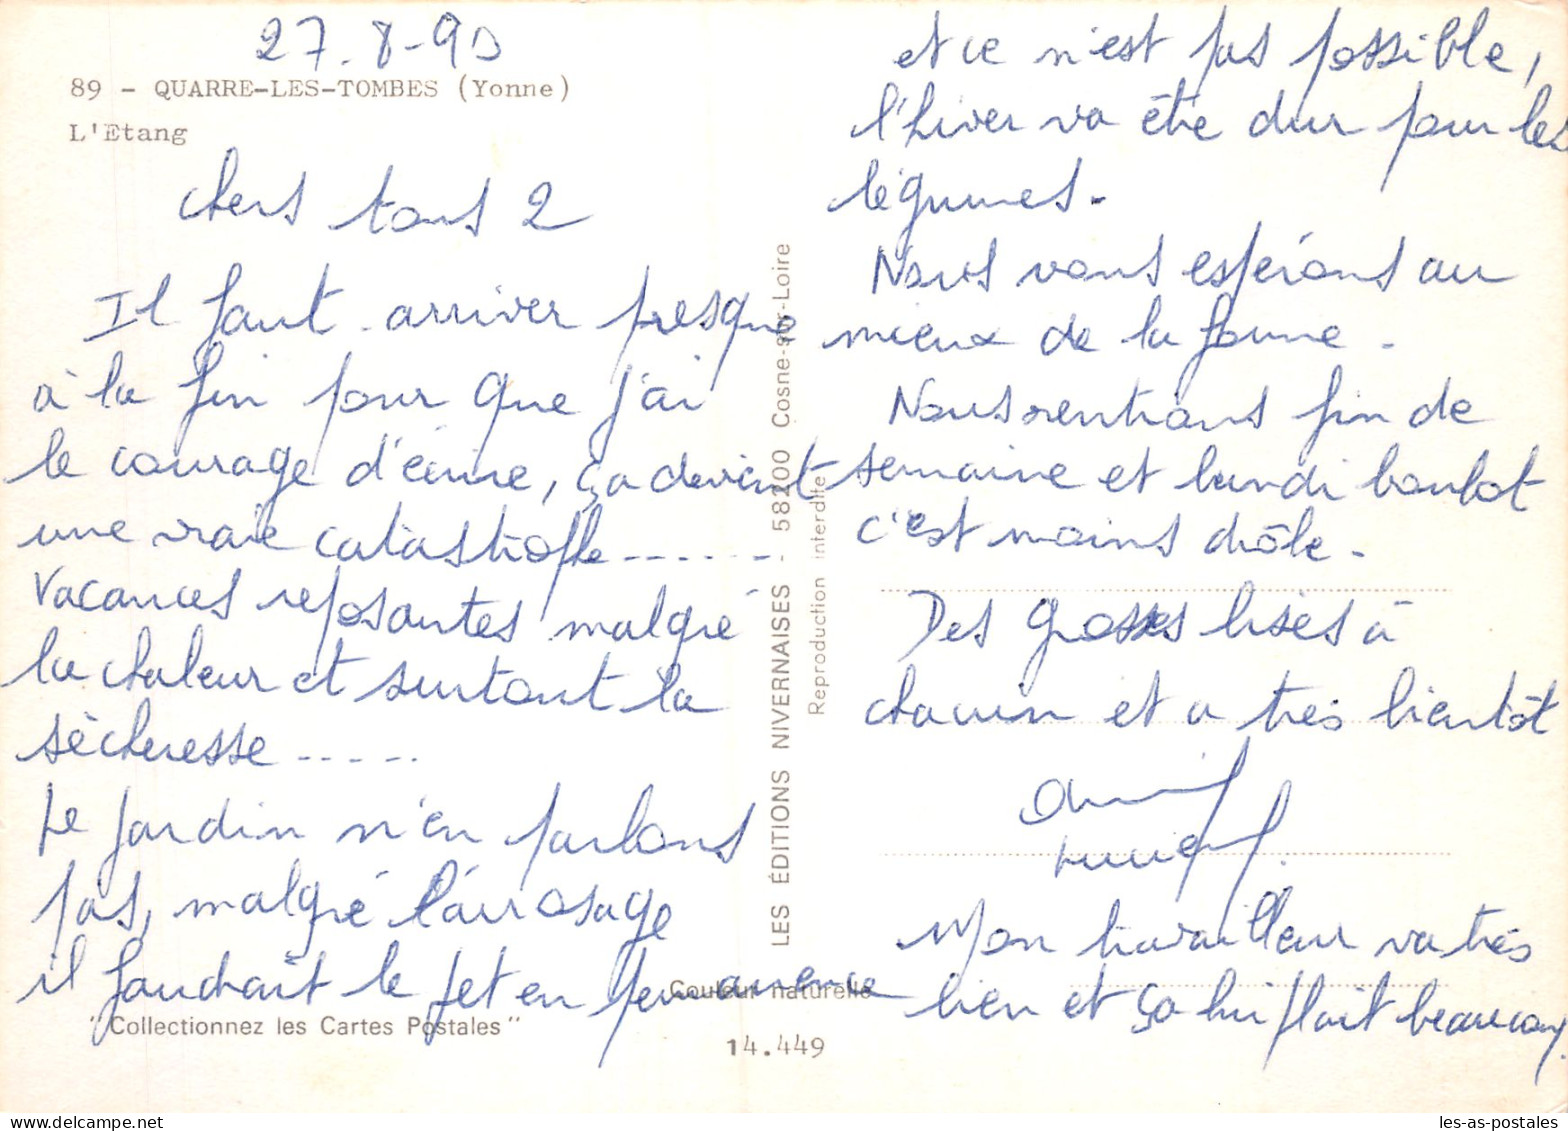 27.8-90
89 - QUARRE-LES-TOMBES (Yonne)
L'Etang
chers tous 2
Il faut arriver presque
à la fin pour que j'ai
le courage d'écrire, ça devient
une vraie catastrophe ------
Vacances reposantes malgré
la chaleur et surtout la
sècheresse -----
Le jardin n'en parlons
pas, malgré l'arrosage
il faudrait le jet en permanence
et ce n'est pas possible,
l'hiver va être dur pour les
légumes.
Nous vous espérons au
mieux de la forme.
Nous rentrons fin de
semaine et lundi boulot
c'est moins drôle.
Des grosses bises à
chacun et a très bientôt
Mon travailleur va très
bien et ça lui plait beaucoup.
LES ÉDITIONS NIVERNAISES - 58200 Cosne-sur-Loire
Reproduction interdite
Couleur naturelle
"Collectionnez les Cartes Postales"
14.449
les-as-postales